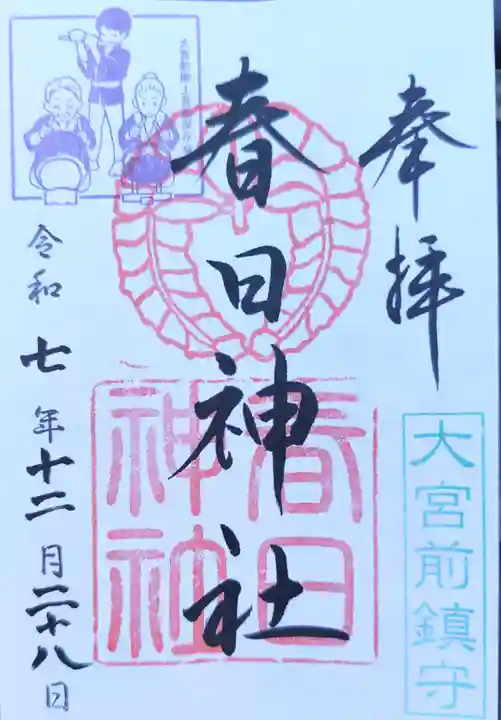 奉拝
大宮前鎮守
春日神社
春日神社
令和七年十二月二十八日